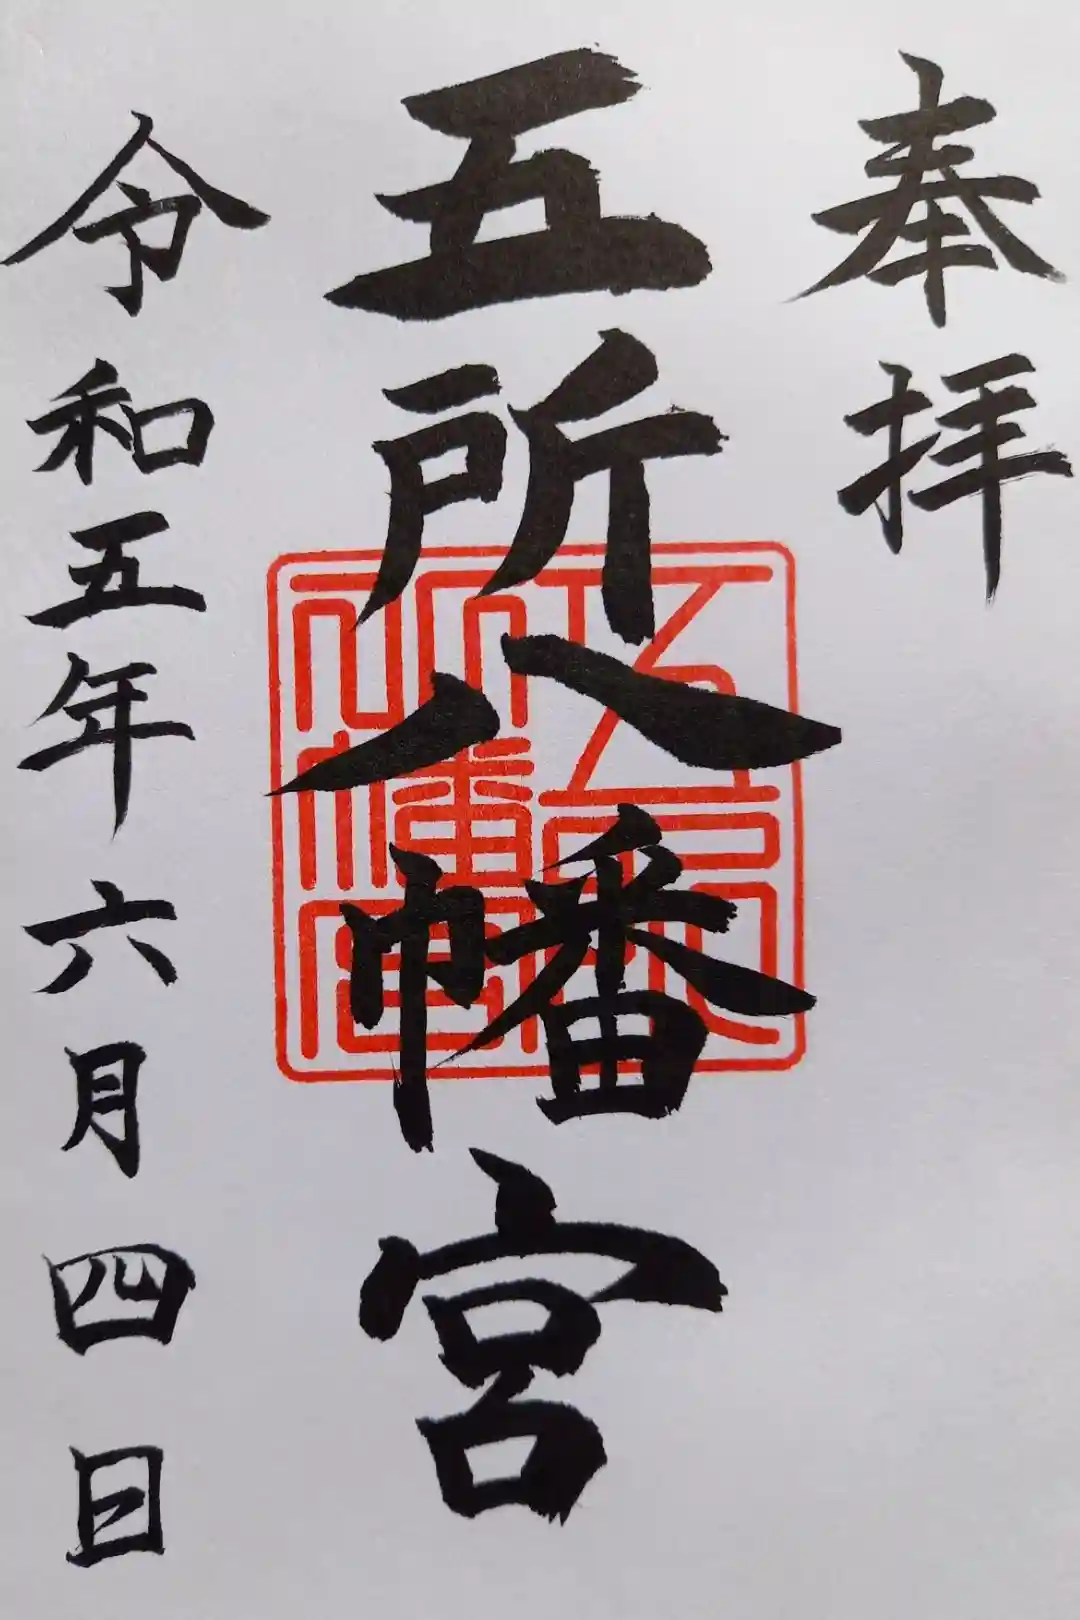 奉拝
五所八幡宮
五所八幡宮
令和五年六月四日